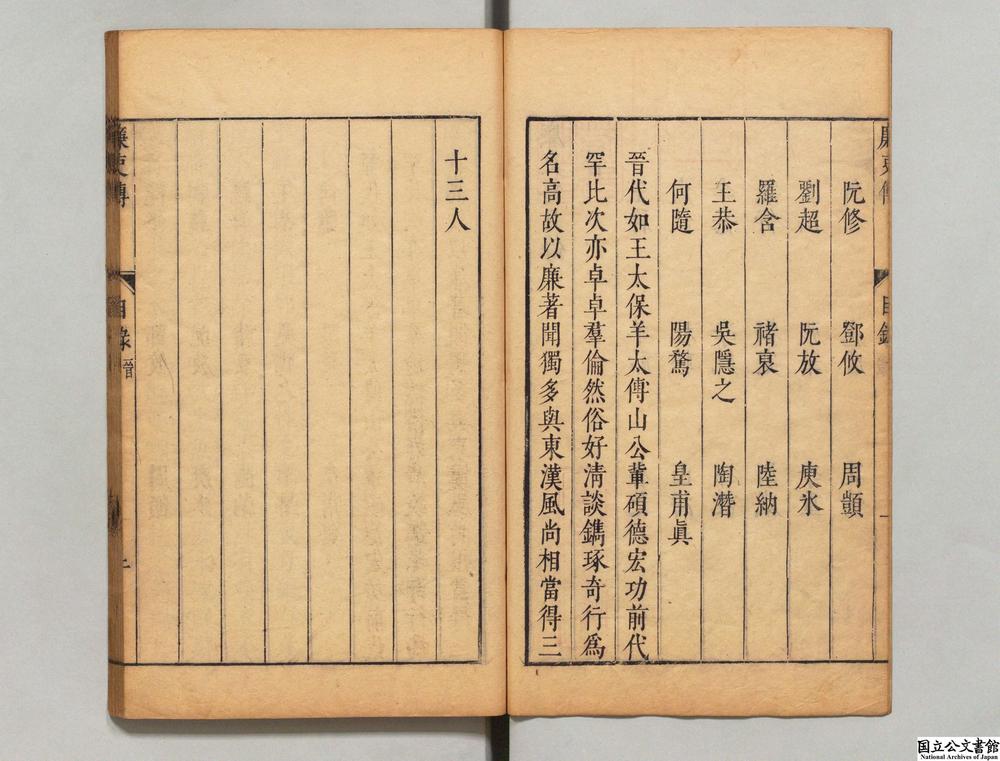 阮修 鄧攸 周顗
劉超 阮放 庾氷
羅含 褚裒 陸納
王恭 吳隱之 陶潛
何隨 陽騖 皇甫眞
晉代如王太保羊太傅山公軰碩德宏功前代
罕比次亦卓卓羣倫然俗好淸談鐫琢奇行爲
名高故以廉著聞獨多與東漢風尚相當得三
十三人
廉吏傳 目錄 晉
国立公文書館
National Archives of Japan